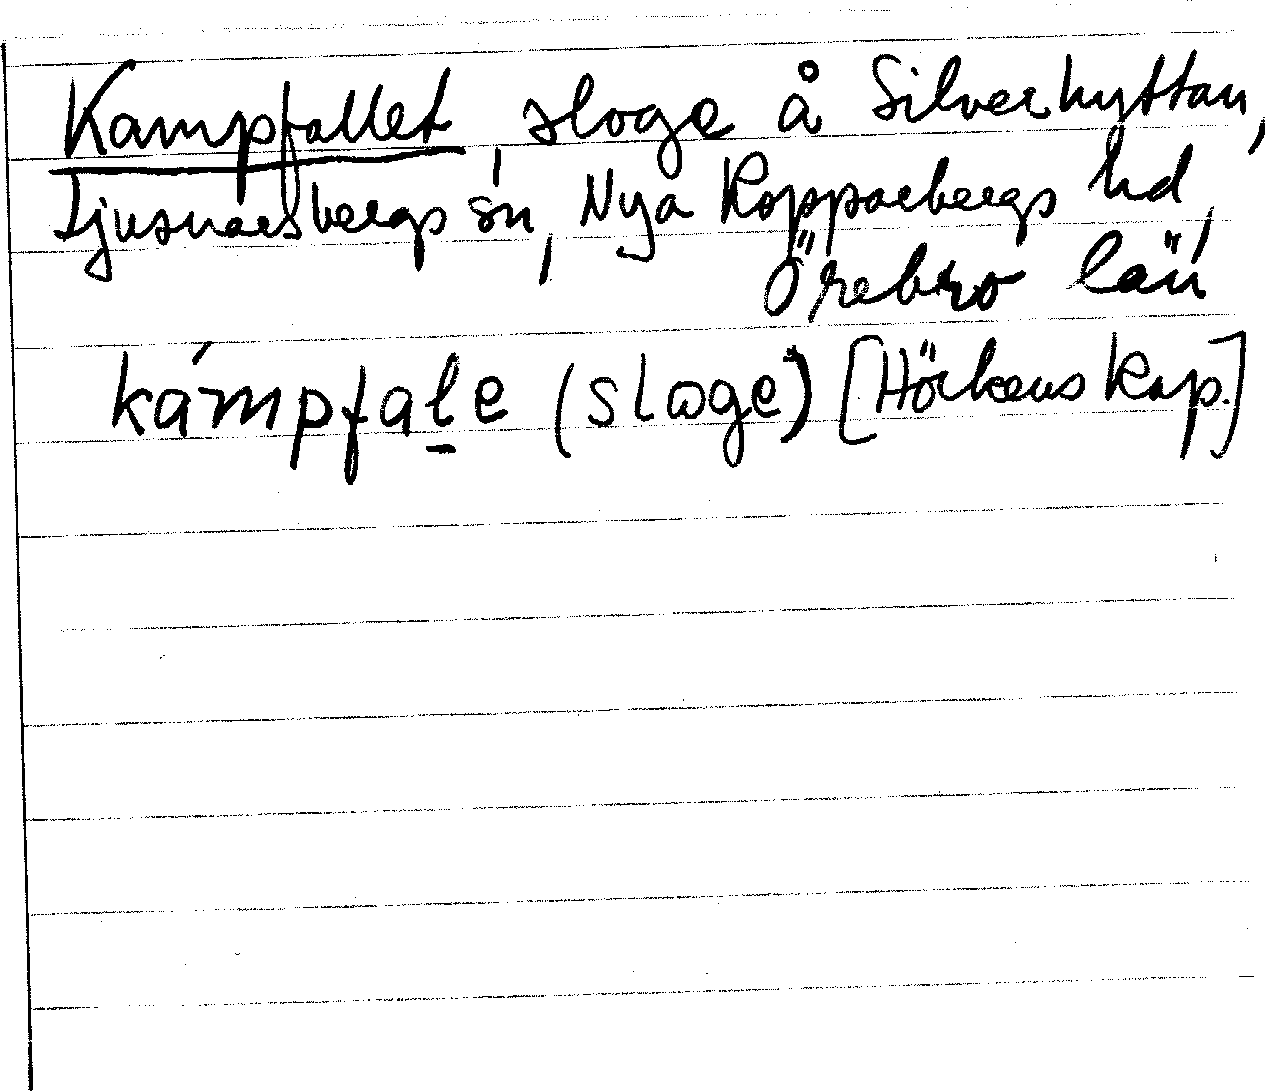 Kampfallet, sloge å Silverhyttan,
Ljusnarsbergs sn, Nya Kopparbergs hd,
Örebro län
kámpfaḻe (slɷge) [Hörkens kap.]